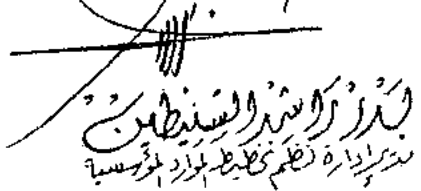 بندر راشد السنيطان
مدير إدارة نظم تخطيط الموارد المؤسسية